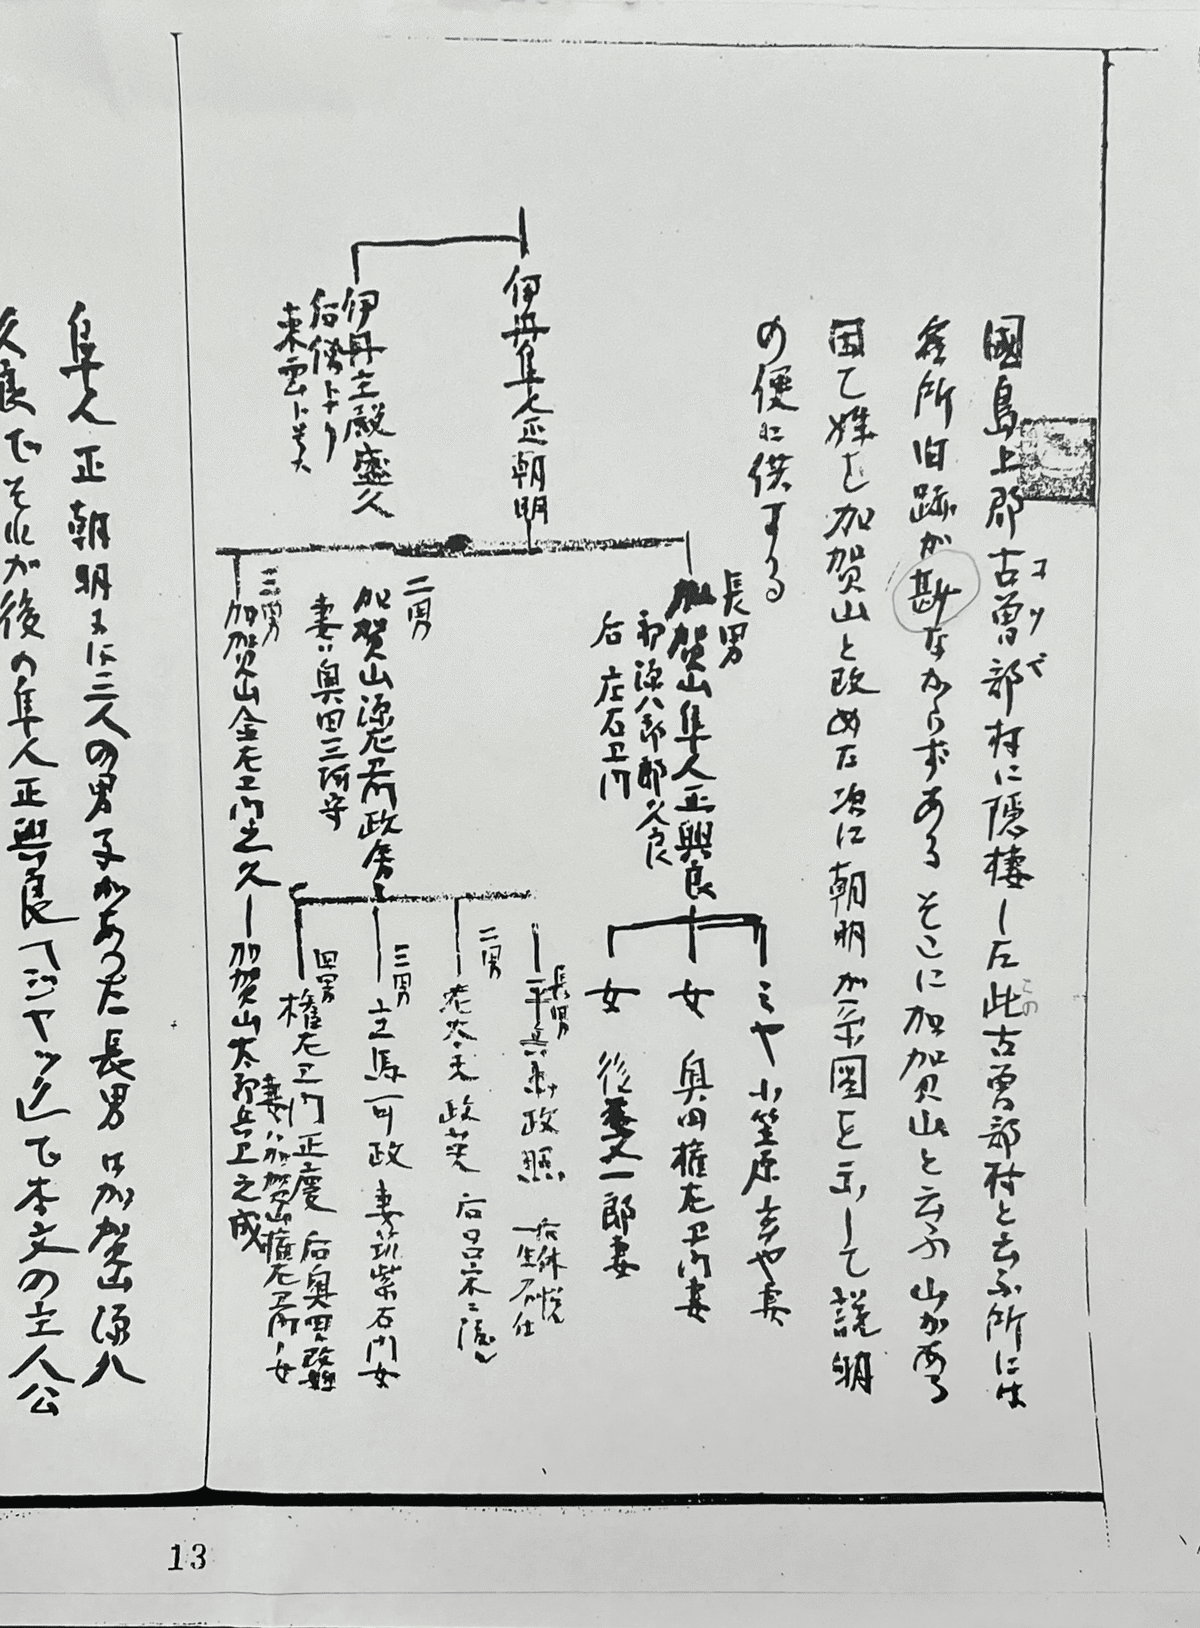 國島上郡古曽部村に隠棲した此古曽部村と云ふ所には
コソベ
この
名所旧跡が尠なからずある そこに加賀山と云ふ山がある
因て姓を加賀山と改めた次に朝明が系図を示して説明
の便に供する
伊丹隼人正朝明
伊丹主殿盛久
后僧トナリ
東雲ト号ス
長男
加賀山隼人正興良
初源八郎郎久良
后 庄右卫门
ミや 小笠原玄や妻
女 奥田権左卫门妻
女 後 一郎妻
二男
加賀山源左卫门政房
妻ハ奥田三河守
長男
平兵衛政照
后休悦
二男
左太夫政
三男
主馬可政 妻筑紫右门女
四男
権左卫门正慶 后奥田
妻ハ加賀山権左卫门女
三男
加賀山金左卫门之久ー加賀山太郎兵卫之成
隼人正朝明には三人の男子があつた長男は加賀山源八
久良でそれが後の隼人正興良「ジヤック」で本文の主人公
13